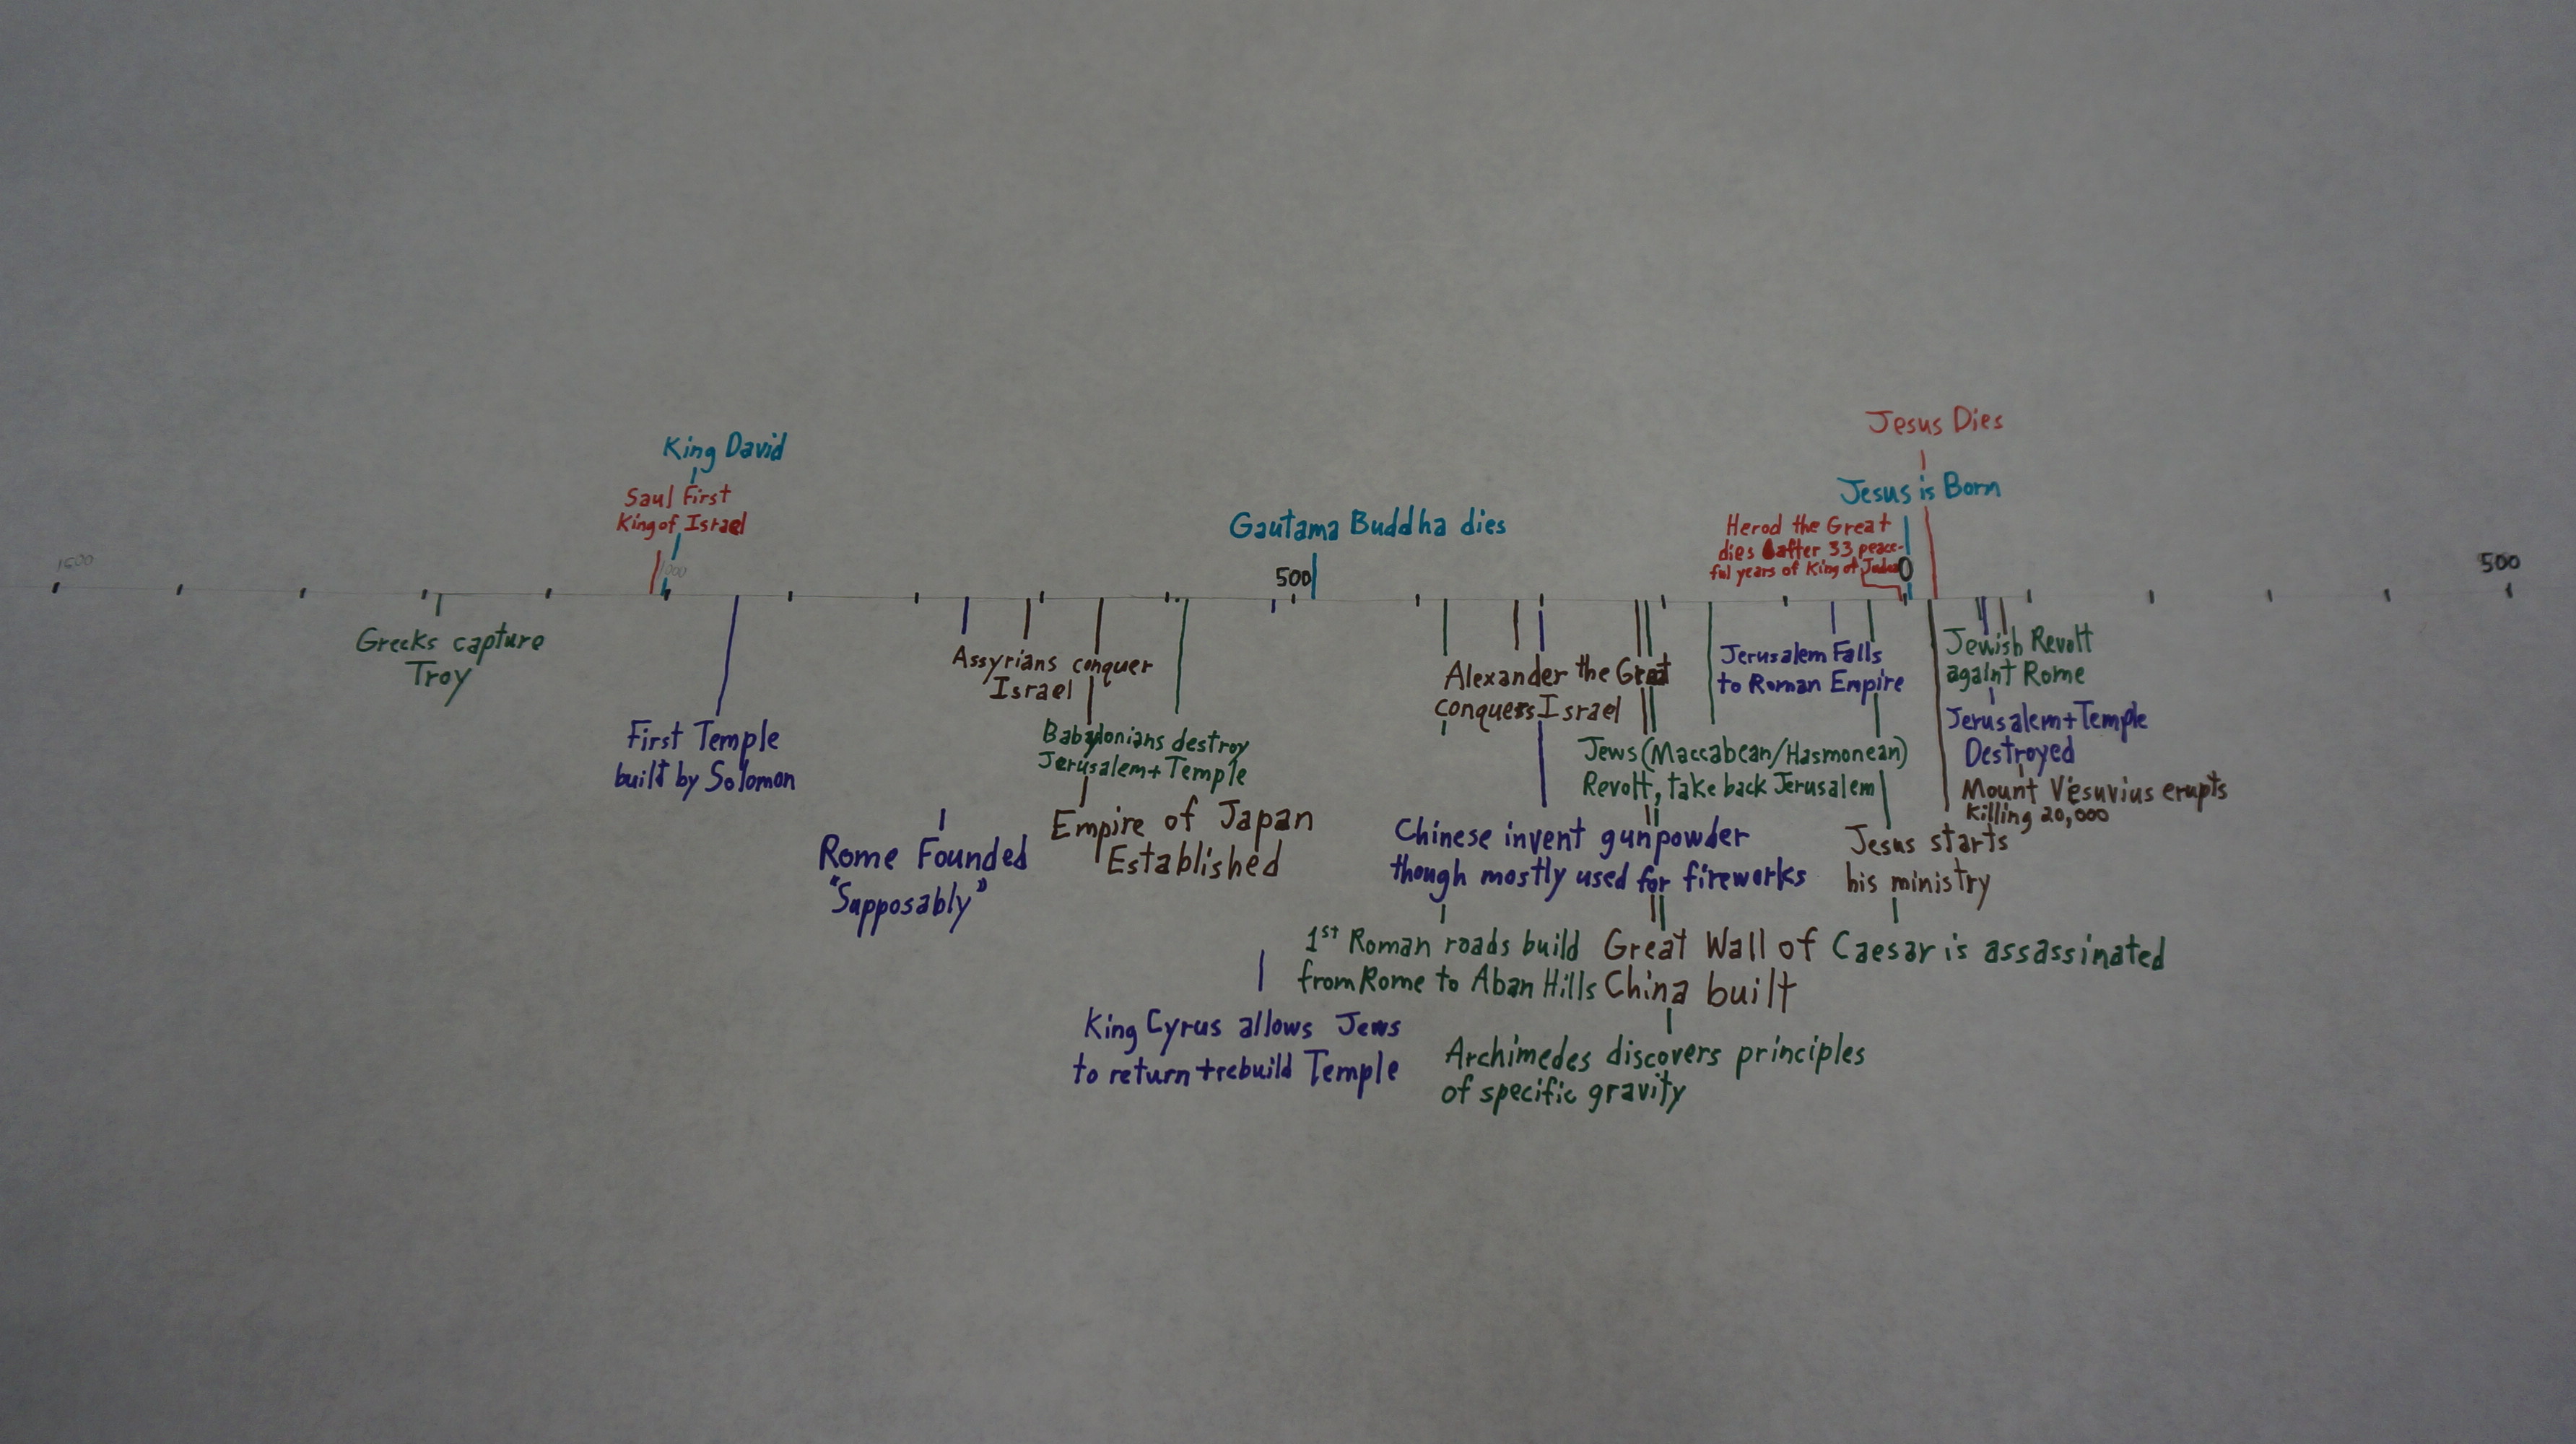 Jesus Dies
King David
Jesus is Born
Saul First
King of Israel
Gautama Buddha dies
Herod the Great
dies after 33 peace-
ful years of King of Judea
1500
1000
500
0
500
Greeks capture
Troy
First Temple
built by Solomon
Rome Founded
"Supposably"
Assyrians conquer
Israel
Babylonians destroy
Jerusalem + Temple
Empire of Japan
Established
King Cyrus allows Jews
to return + rebuild Temple
Alexander the Great
conquers Israel
Chinese invent gunpowder
though mostly used for fireworks
1st Roman roads build
from Rome to Aban Hills
Jews (Maccabean/Hasmonean)
Revolt, take back Jerusalem
Great Wall of
China built
Archimedes discovers principles
of specific gravity
Jerusalem Falls
to Roman Empire
Jesus starts
his ministry
Caesar is assassinated
Jewish Revolt
againt Rome
Jerusalem + Temple
Destroyed
Mount Vesuvius erupts
Killing 20,000